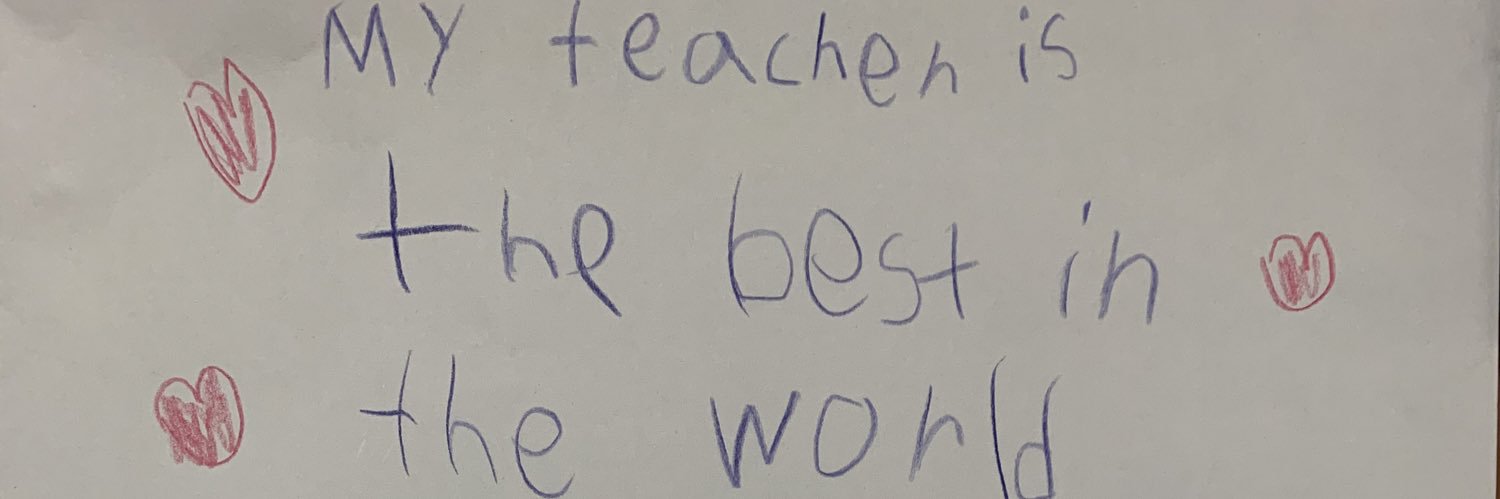 My teacher is
the best in
the world